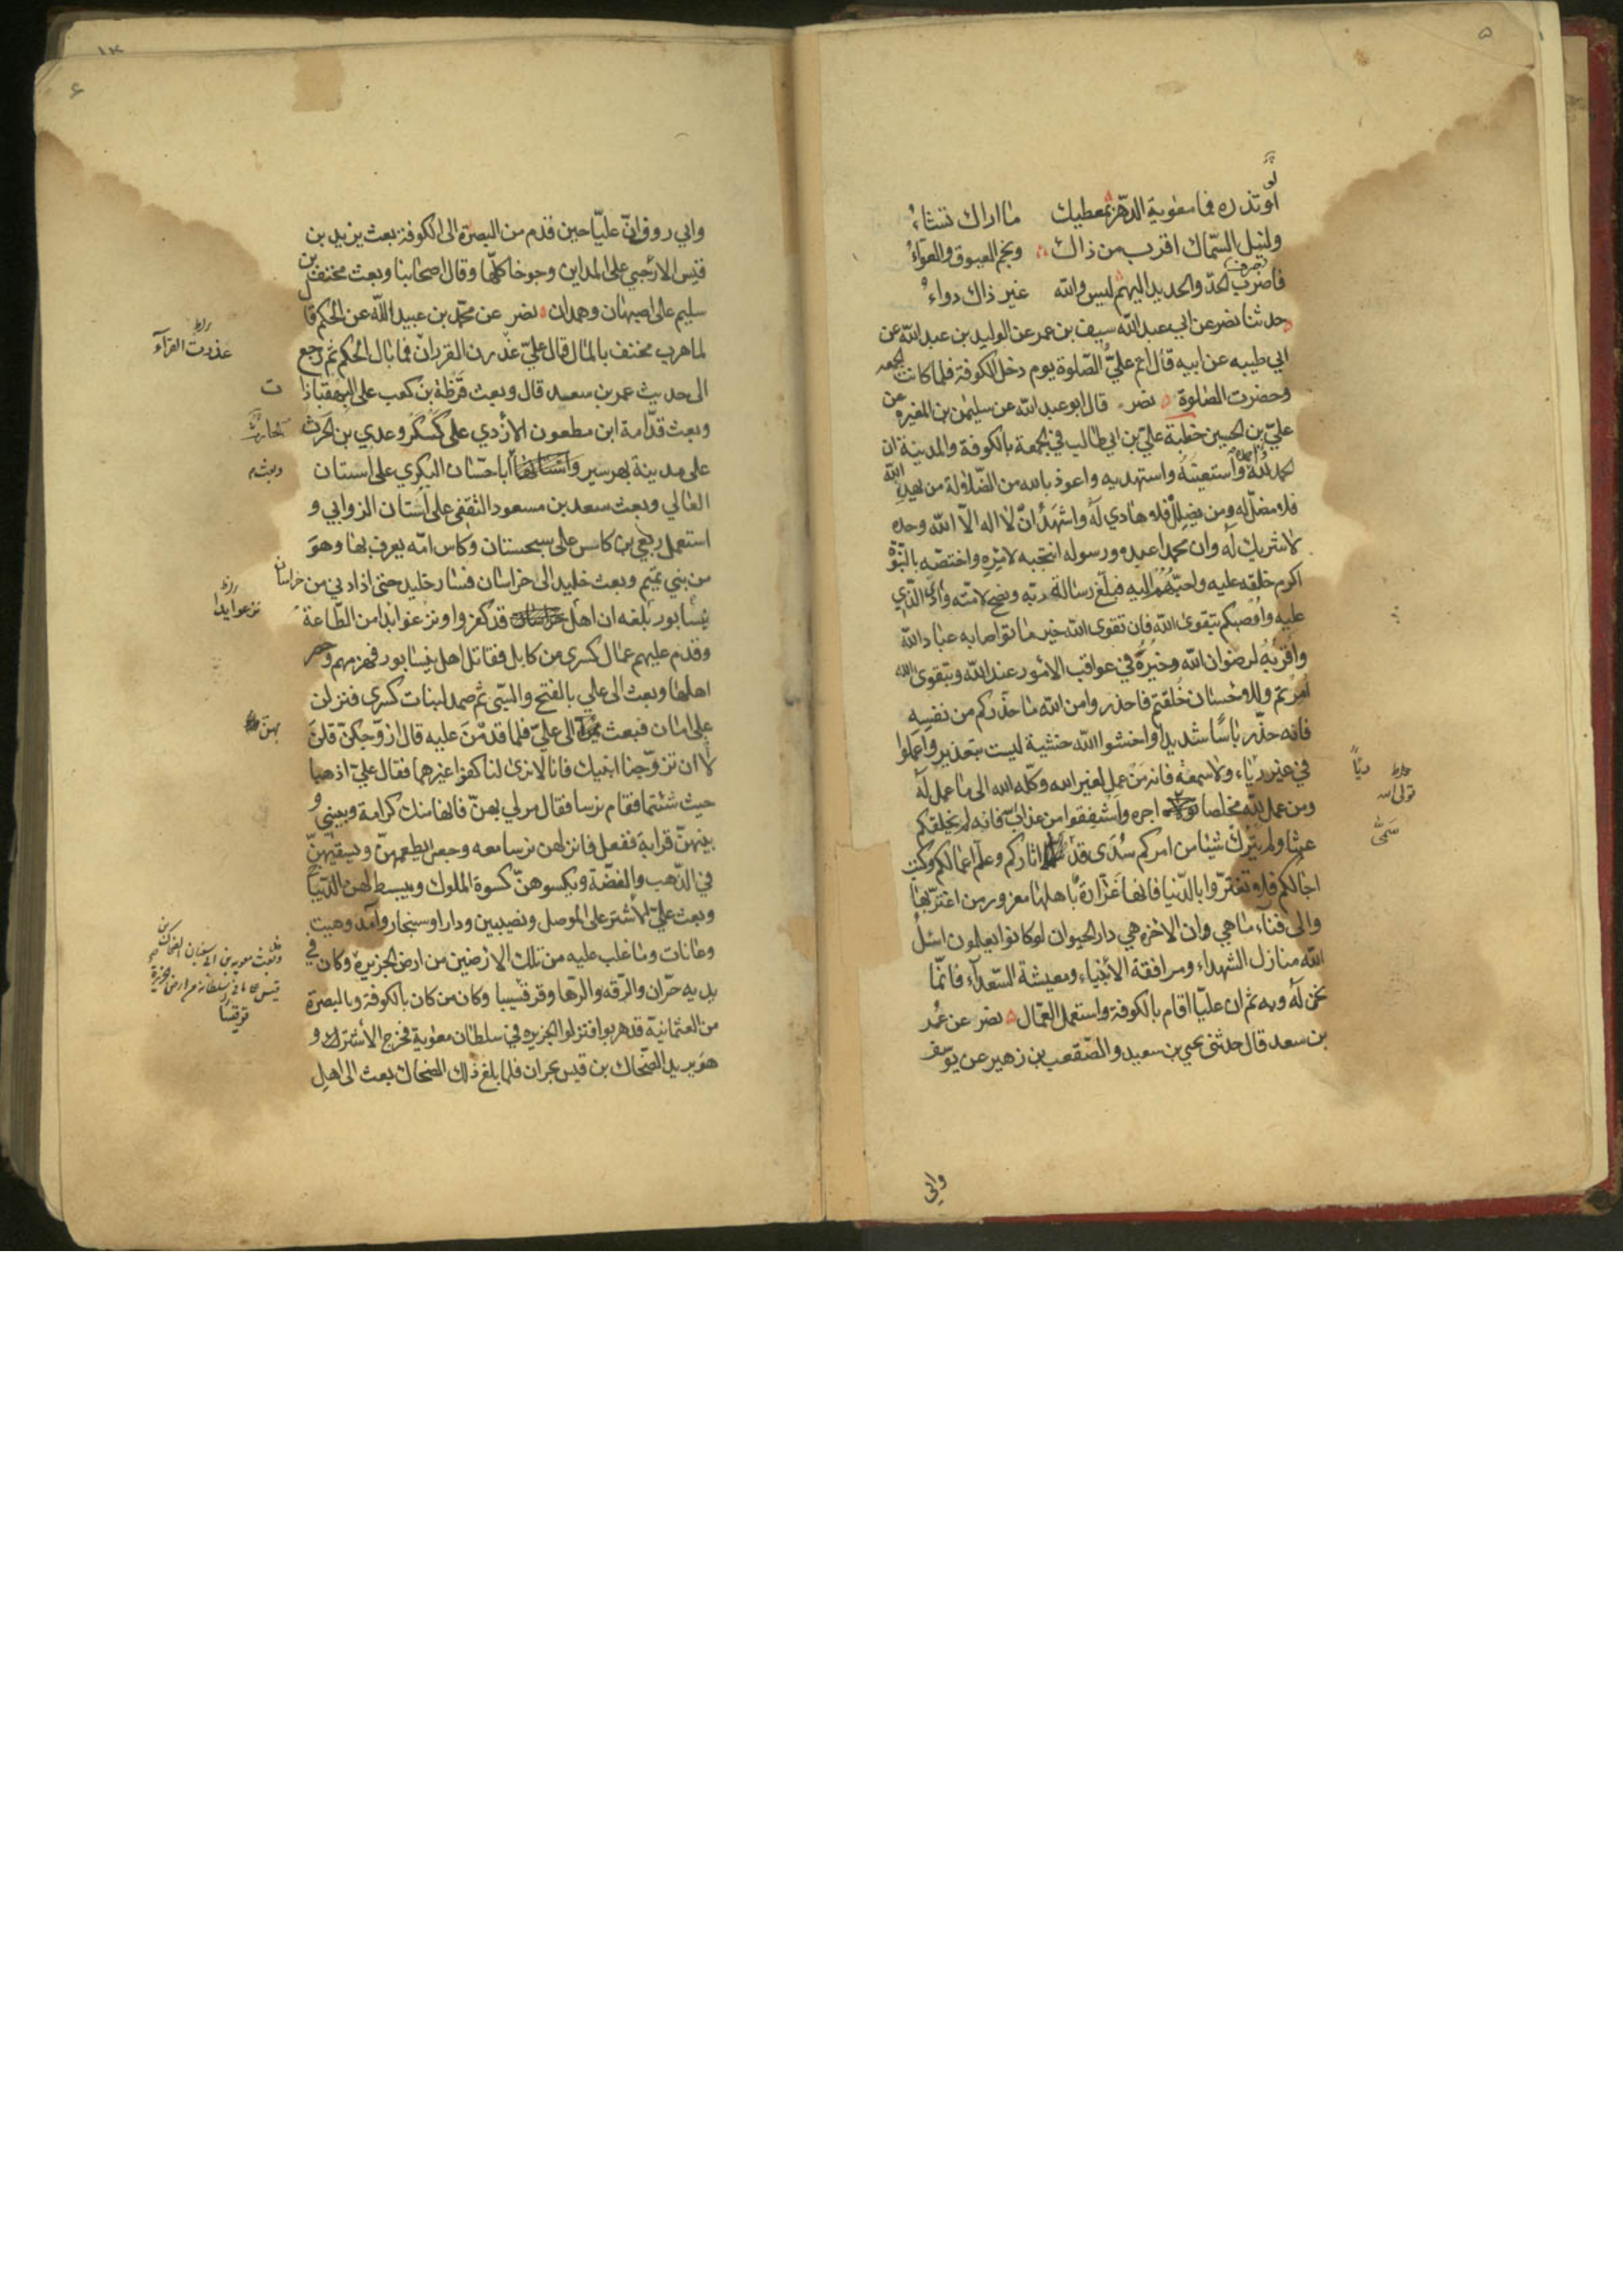 ۵
او تذره فما معوية الدهر بمعطيك ما اراك تشاء
ولنيل السماك اقرب من ذاك ونجم العيوق والعواء
فاضرب الحد والحديد اليهم ليس والله غير ذاك دواء
حدثنا نصر عن ابي عبد الله سيف بن عمر عن الوليد بن عبد الله عن
ابي طيبه عن ابيه قال اتم علي الصلوة يوم دخل الكوفة فلما كانت الجمعه
وحضرت الصلوة نصر قال ابو عبد الله عن سليمن بن المغيره عن
علي بن الحسين خطبة علي بن ابي طالب في الجمعة بالكوفة والمدينة ان
الحمد لله احمده واستعينه واستهديه واعوذ بالله من الضلالة من يهد الله
فلا مضل له ومن يضلل فلا هادي له واشهد ان لا اله الا الله وحده
لا شريك له وان محمدا عبده ورسوله انتجبه لامره واختصه بالنبوة
اكرم خلقه عليه واحبهم اليه فبلغ رسالة ربه ونصح لامته وادى الذي
عليه واوصيكم بتقوى الله فان تقوى الله خير ما تواصا به عباد الله
واقربه لرضوان الله وخيره في عواقب الامور عند الله وبتقوى الله
امرتم وللاحسان خلقتم فاحذروا من الله ما حذركم من نفسه
فانه حذر باسا شديدا واخشوا الله خشية ليست بتعذير واعملوا
في غير رياء ولا سمعة فانه من عمل لغير الله وكله الله الى ما عمل له
ومن عمل لله مخلصا اجره واشفقوا من عذاب فانه لم يخلقكم
عبثا ولم يترك شيئا من امركم سدى قد اثاركم وعلم اعمالكم وكتب
اجالكم فلا تغتروا بالدنيا فانها غرارة باهلها مغرور من اغتر بها
والى فناء ما هي وان الاخرة هي دار الحيوان لو كانوا يعلمون اسئل
الله منازل الشهداء ومرافقة الأنبياء ومعيشة السعداء فانما
نحن له وبه ثم ان عليا اقام بالكوفة واستعمل العمال نصر عن عمر
بن سعد قال حدثنى يحيى بن سعيد والصقعب بن زهير عن يوسف
رياً
تولى الله
سمّى
وابي
۶
وابي روق ان عليا حين قدم من البصرة الى الكوفة بعث يزيد بن
قيس الارحبي على المداين وجوخا كلها وقال اصحابنا وبعث مخنف بن
سليم على اصبهان وهمدان نصر عن محمد بن عبيد الله عن الحكم قا
لما هرب مخنف بالمال قال علي عذرت القردان فما بال الحكم ثم رجع
الى حديث عمر بن سعد قال وبعث قرظة بن كعب على البهقباذا
وبعث قدامة ابن مظعون الازدي على كسكر وعدي بن الحرث
على مدينة بهرسير ابا حسان البكري على استان
العالي وبعث سعد بن مسعود الثقفي على استان الزوابي و
استعمل ربعي بن كاس على سجستان وكاس امه يعرف بها وهو
من بني تميم وبعث خليد الى خراسان فسار خليد حتى اذا دنى من خراسان
نيسابور بلغه ان اهل قد كفروا ونزعوا ايدا من الطاعة
وقدم عليهم عمال كسرى من كابل فقاتل اهل نيسابور فهزمهم وحصر
اهلها وبعث الى علي بالفتح والسبي ثم صمد لبنات كسرى فنزلن
على امان فبعث الى علي فلما قدمن عليه قال ازوجكن قلن
لا ان تزوجنا ابنيك فانا لا نرى لنا كفوا غيرهما فقال علي اذهبا
حيث شئتما فقام نرسا فقال مر لي بهن فانها منك كرامة وبيني و
بينهن قرابة ففعل فانزلهن نرسا معه وجعل يطعمهن ويسقيهن
في الذهب والفضة ويكسوهن كسوة الملوك ويبسط لهن الديباج
وبعث علي الأشتر على الموصل ونصيبين ودارا وسنجار وآمد وهيت
وعانات وما غلب عليه من تلك الارضين من ارض الجزيرة وكان في
يديه حران والرقه والرها وقرقيسيا وكان من كان بالكوفة وبالبصرة
من العثمانية قد هربوا فنزلوا الجزيرة في سلطان معوية فخرج الأشتر و
هو يريد الضحاك بن قيس بحران فلما بلغ ذلك الضحاك بعث الى اهل
عذرت القرآء
ت
الحارث
وبعث
نزعوا يدا
بهن
وبعث معوية بن ابي سفيان الضحاك بن
قيس على ما في سلطانه من ارض الجزيرة